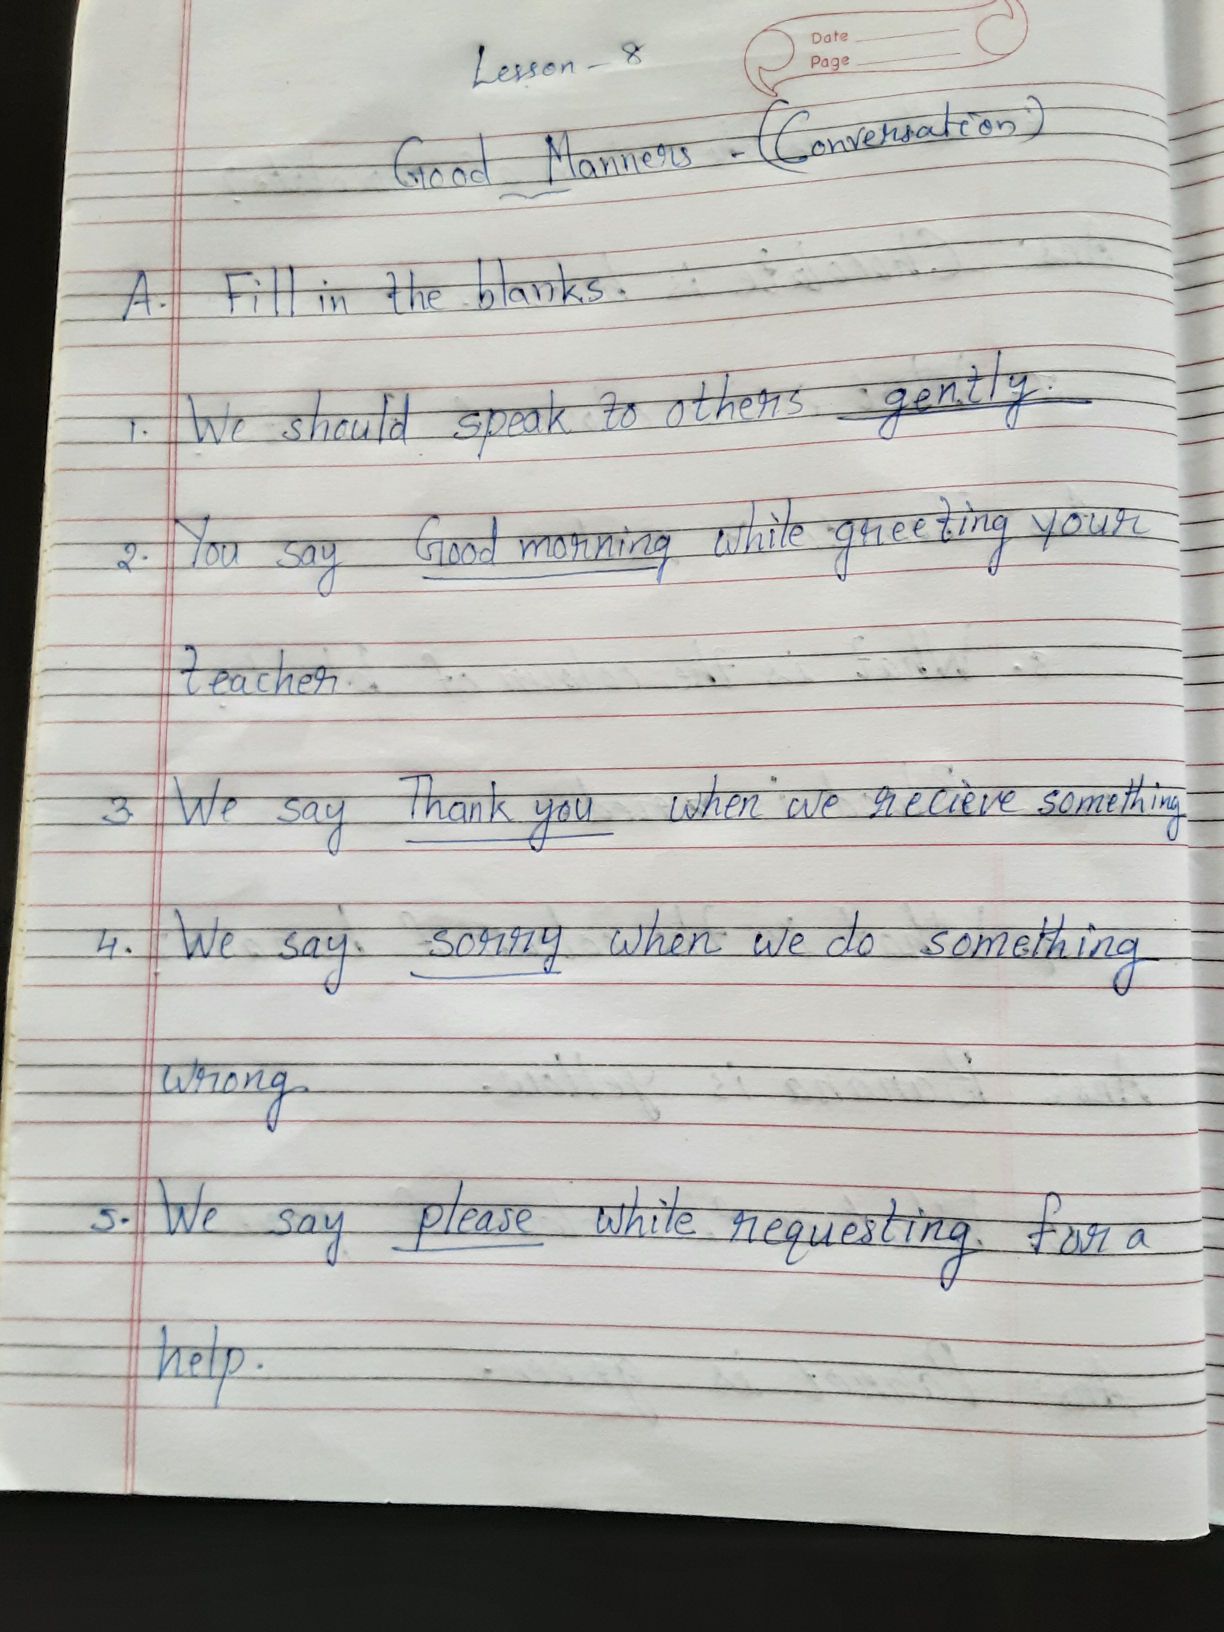 Date
Page
Lesson - 8
Good Manners - (Conversation)
A. Fill in the blanks.
1. We should speak to others gently.
2. You say Good morning while greeting your
teacher.
3. We say Thank you when we recieve something
4. We say sorry when we do something
wrong.
5. We say please while requesting for a
help.